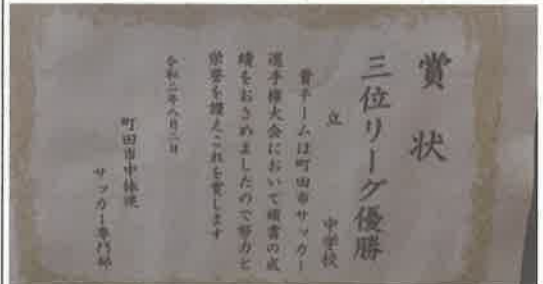 賞状
三位リーグ優勝
立 中学校
貴チームは町田市サッカー
選手権大会において頭書の成
績をおさめましたので努力と
栄誉を讃えこれを賞します
令和二年八月二日
町田市中体連
サッカー専門部